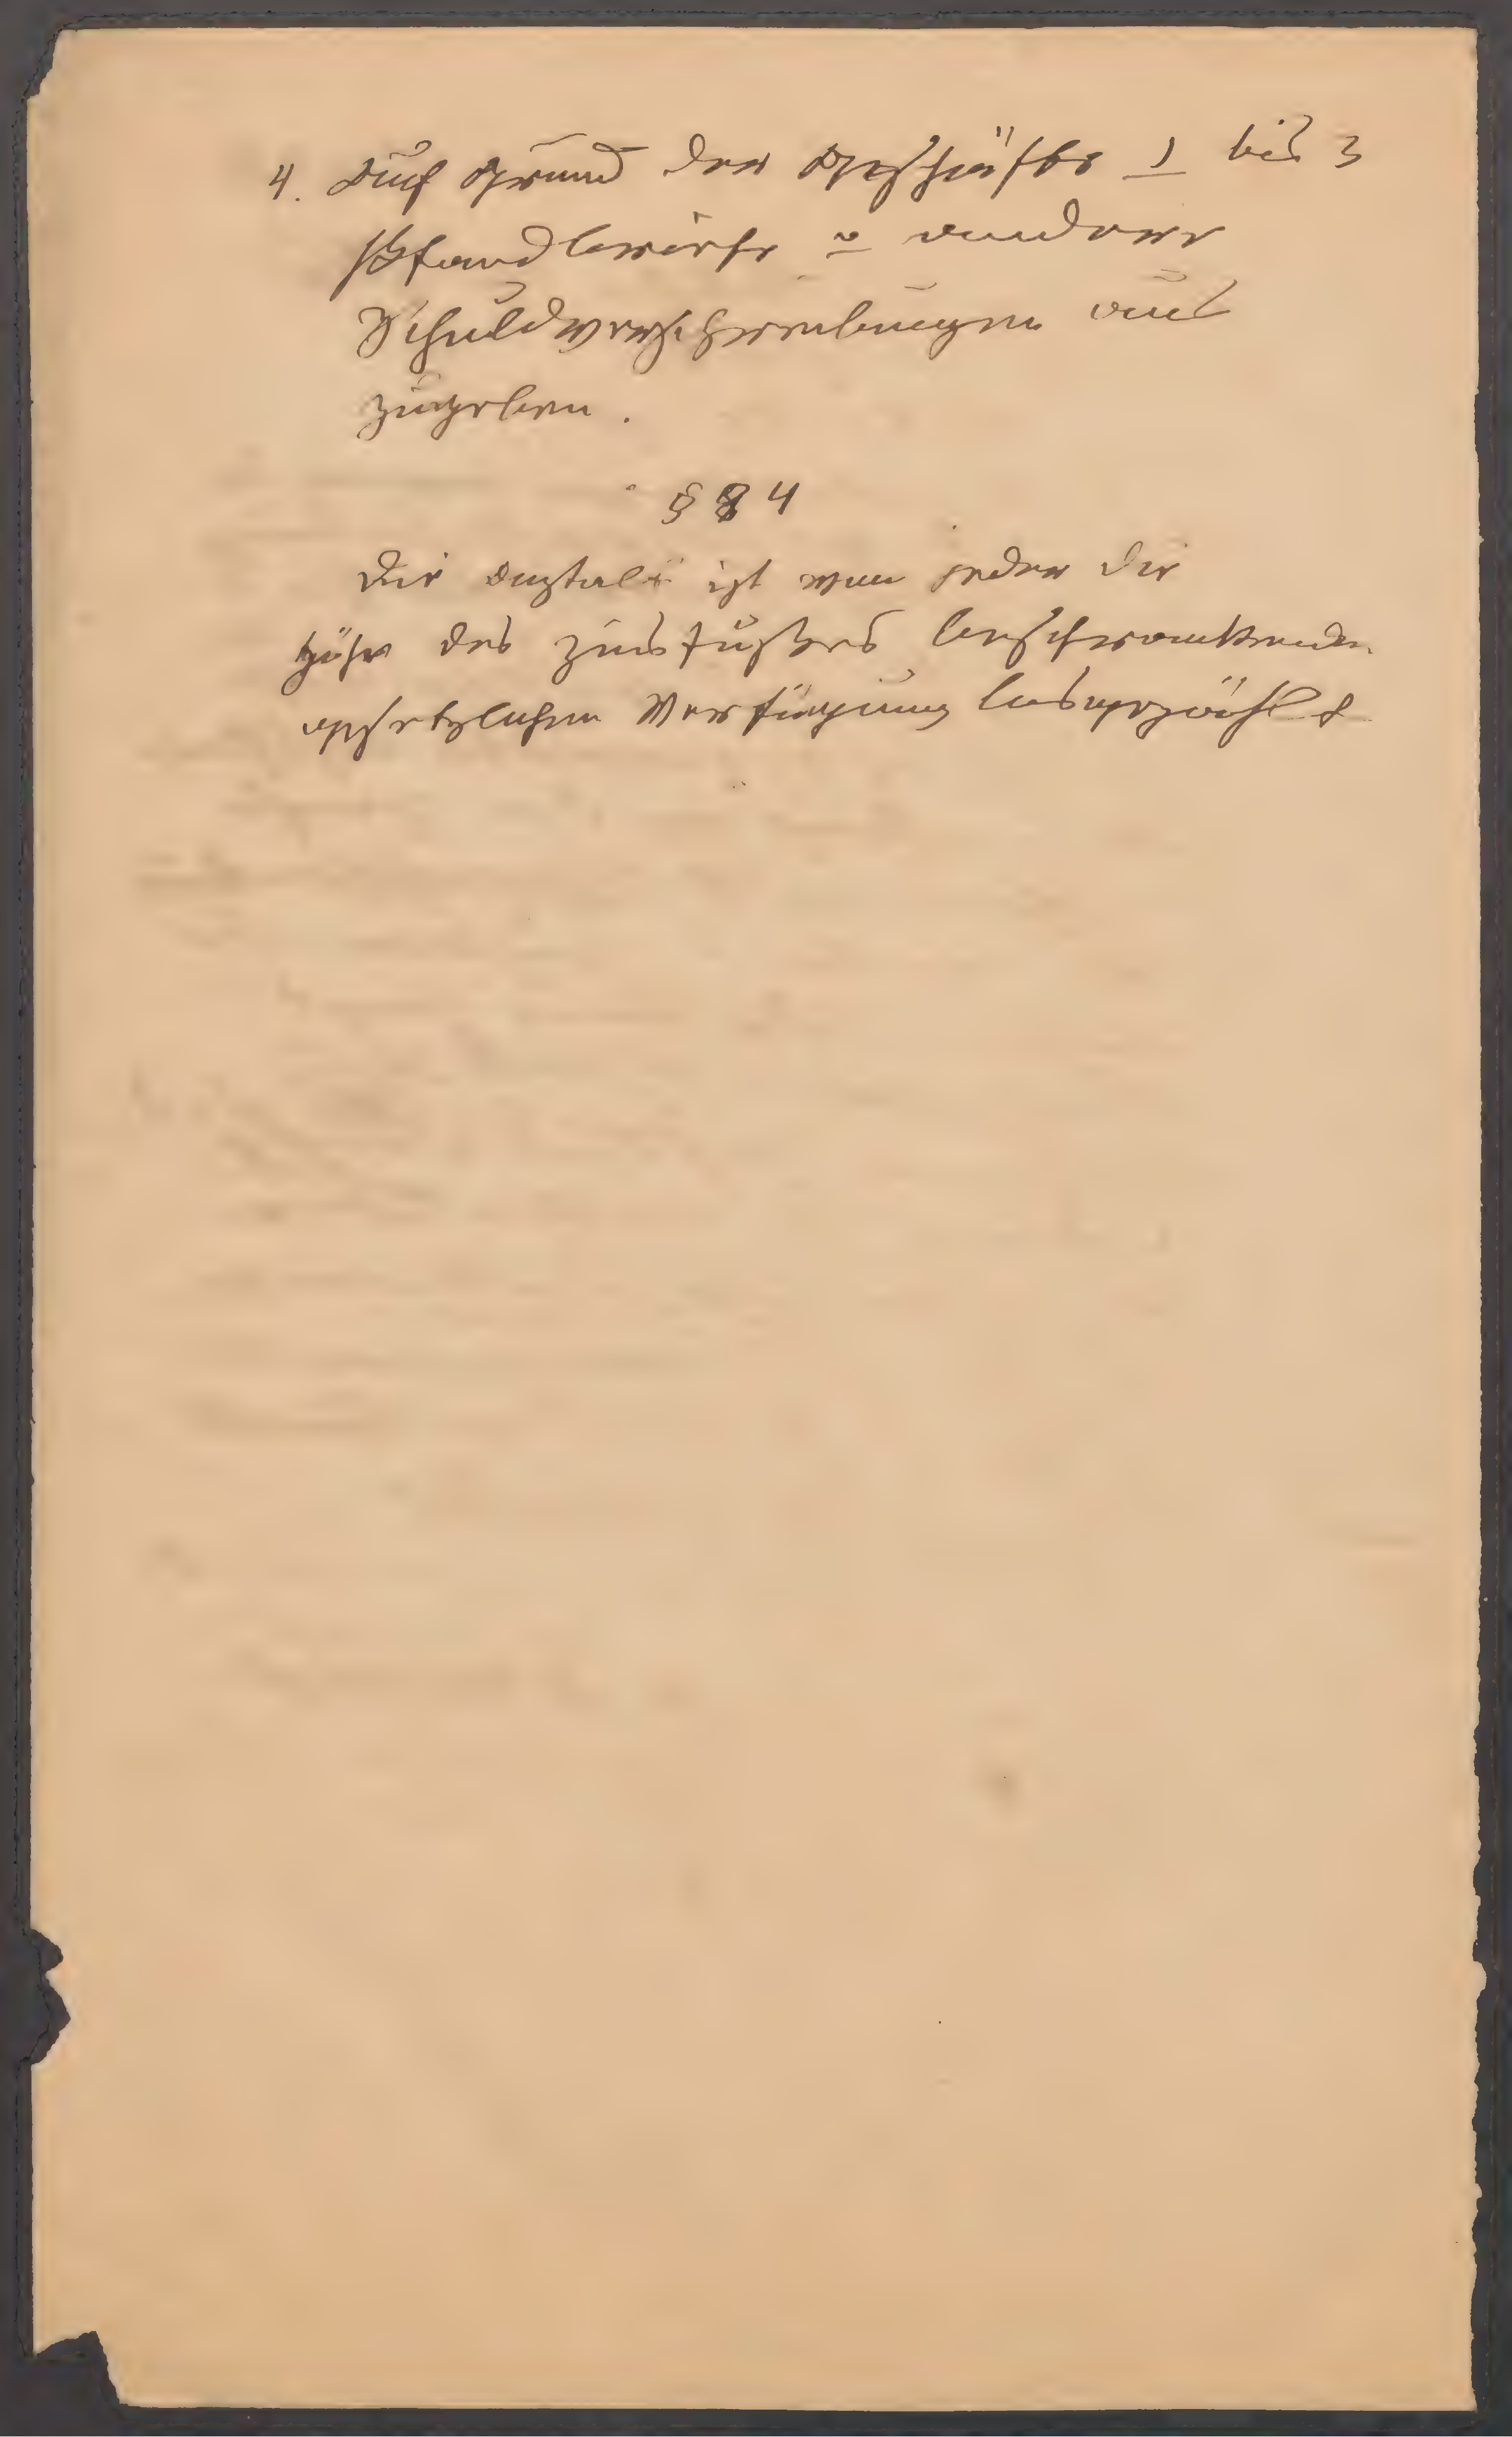 4. Auf Grund der Geschäfte 1 bis 3
Pfandbriefe u andere
Schuldverschreibungen aus
zugeben.
§ 4
Die Anstalt ist von jeder die
Höhe des Zinsfußes beschränkenden
gesetzlichen Verfügung losgezählt